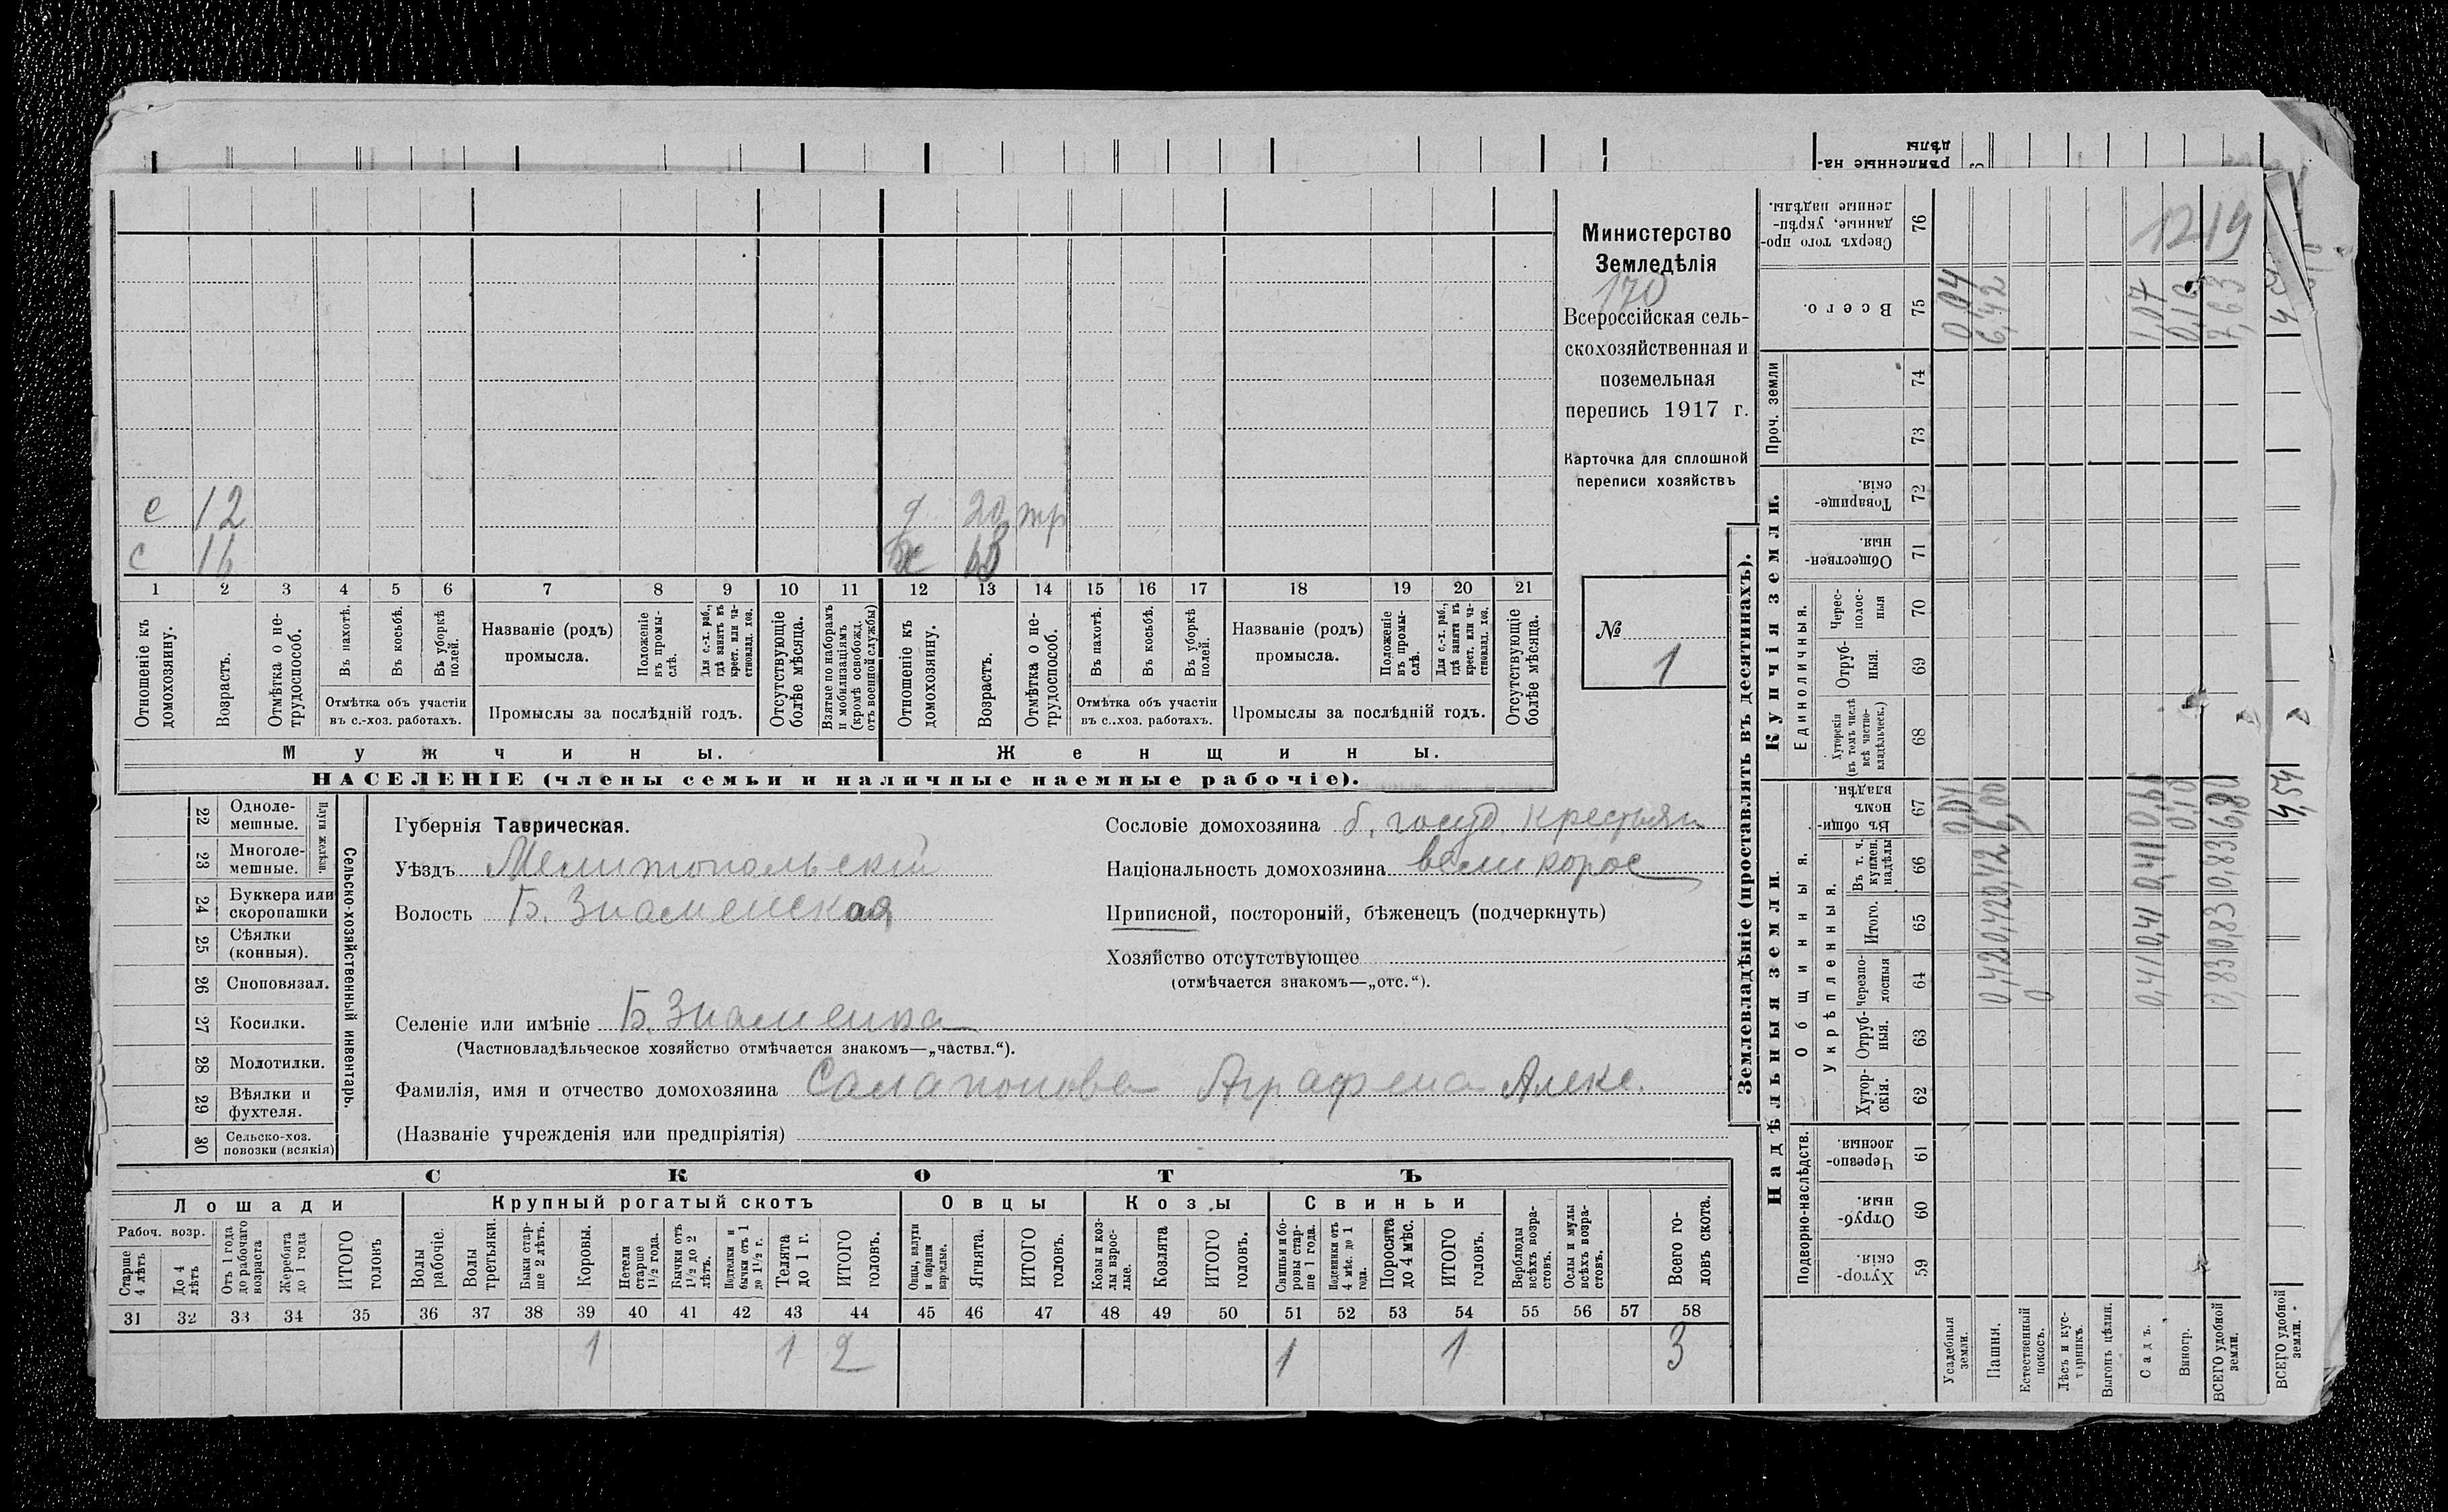 рѣпленные на-
дѣлы
е 12 д 20 тр
с 16 ж
1 2 3 4 5 6 7 8 9 10 11 12 13 14 15 16 17 18 19 20 21
Отношеніе къ домохозяину.
Возрастъ.
Отмѣтка о не-трудоспособ.
Въ пахотѣ.
Въ косьбѣ.
Въ уборкѣ полей.
Отмѣтка объ участіи
въ с.-хоз. работахъ.
Названіе (родъ)
промысла.
Положеніе въ промы-слѣ.
Для с.-х. раб., гдѣ занятъ въ крест. или ча-стновлад. хоз.
Промыслы за послѣдній годъ.
Отсутствующіе болѣе мѣсяца.
Взятые по наборамъ и мобилизаціямъ (кромѣ освобожд. отъ военной службы)
Отношеніе къ домохозяину.
Возрастъ.
Отмѣтка о не-трудоспособ.
Въ пахотѣ.
Въ косьбѣ.
Въ уборкѣ полей.
Отмѣтка объ участіи
въ с..хоз. работахъ.
Названіе (родъ)
промысла.
Положеніе въ промы-слѣ.
Для с.-х. раб., гдѣ занята въ крест. или ча-стновлад. хоз.
Промыслы за послѣдній годъ.
Отсутствующіе болѣе мѣсяца.
Мужчины. Женщины.
НАСЕЛЕНІЕ (члены семьи и наличные наемные рабочіе).
Министерство
Земледѣлія
170
Всероссійская сель-
скохозяйственная и
поземельная
перепись 1917 г.
Карточка для сплошной
переписи хозяйствъ
№
1
22 Одноле-мешные.
23 Многоле-мешные.
Плуги желѣзн.
24 Буккера или скоропашки
25 Сѣялки (конныя).
26 Сноповязал.
27 Косилки.
28 Молотилки.
29 Вѣялки и фухтеля.
30 Сельско-хоз. повозки (всякія)
Сельско-хозяйственный инвентарь.
Губернія Таврическая.
Уѣздъ Мелитопольскій
Волость Б. Знаменская
Сословіе домохозяина б. госуд. крестьян
Національность домохозяина великорос
Приписной, посторонній, бѣженецъ (подчеркнуть)
Хозяйство отсутствующее
(отмѣчается знакомъ—„отс.“).
Селеніе или имѣніе Б. Знаменка
(Частновладѣльческое хозяйство отмѣчается знакомъ—„частвл.“).
Фамилія, имя и отчество домохозяина Аграфена Алекс.
(Названіе учрежденія или предпріятія)
СКОТЪ
Лошади Крупный рогатый скотъ Овцы Козы Свиньи
Рабоч. возр.
Старше 4 лѣтъ
До 4 лѣтъ
Отъ 1 года до рабочаго возраста
Жеребята до 1 года
ИТОГО головъ
Волы рабочіе.
Волы третьяки.
Быки стар-ше 2 лѣтъ.
Коровы.
Нетели старше 1½ года.
Бычки отъ 1½ до 2 лѣтъ.
Подтелки и бычки отъ 1 до 1½ г.
Телята до 1 г.
ИТОГО головъ.
Овцы, валухи и бараны взрослые.
Ягнята.
ИТОГО головъ.
Козы и коз-лы взрос-лые.
Козлята
ИТОГО головъ.
Свиньи и бо-ровы стар-ше 1 года.
Подсвинки отъ 4 мѣс. до 1 года.
Поросята до 4 мѣс.
ИТОГО головъ.
Верблюды всѣхъ возра-стовъ.
Ослы и мулы всѣхъ возра-стовъ.
Всего го-ловъ скота.
31 32 33 34 35 36 37 38 39 40 41 42 43 44 45 46 47 48 49 50 51 52 53 54 55 56 57 58
1 1 2 1 1 3
Землевладѣніе (проставлять въ десятинахъ).
Надѣльныя земли. Купчія земли. Проч. земли
Подворно-наслѣдств.
Общинныя.
Укрѣпленныя.
Единоличныя.
Хутор-скія. 59
Отруб-ныя. 60
Черезпо-лосныя 61
Хутор-скія. 62
Отруб-ныя. 63
Черезпо-лосныя 64
Итого. 65
Въ т. ч. куплен. надѣлы 66
Въ общи-номъ владѣн. 67
Хуторскія (въ томъ числѣ всѣ частно-владѣльческ.) 68
Отруб-ныя. 69
Черес-полос-ныя 70
Обществен-ныя. 71
Товарище-скія. 72
73
74
Всего. 75
Сверхъ того про-данные, укрѣп-ленные надѣлы. 76
Усадебныя земли. 0,04 0,04
Пашня. 0,42 0,42 0,42 6,00 6,42
Естественный покосъ. 0
Лѣсъ и кус-тарникъ.
Выгонъ цѣлин.
Садъ. 0,41 0,41 0,41 0,66 1,07
Виногр. 0,10 0,10
ВСЕГО удобной земли. 0,83 0,83 0,83 6,80 7,63
1219
ВСЕГО удобной земли. 4,54